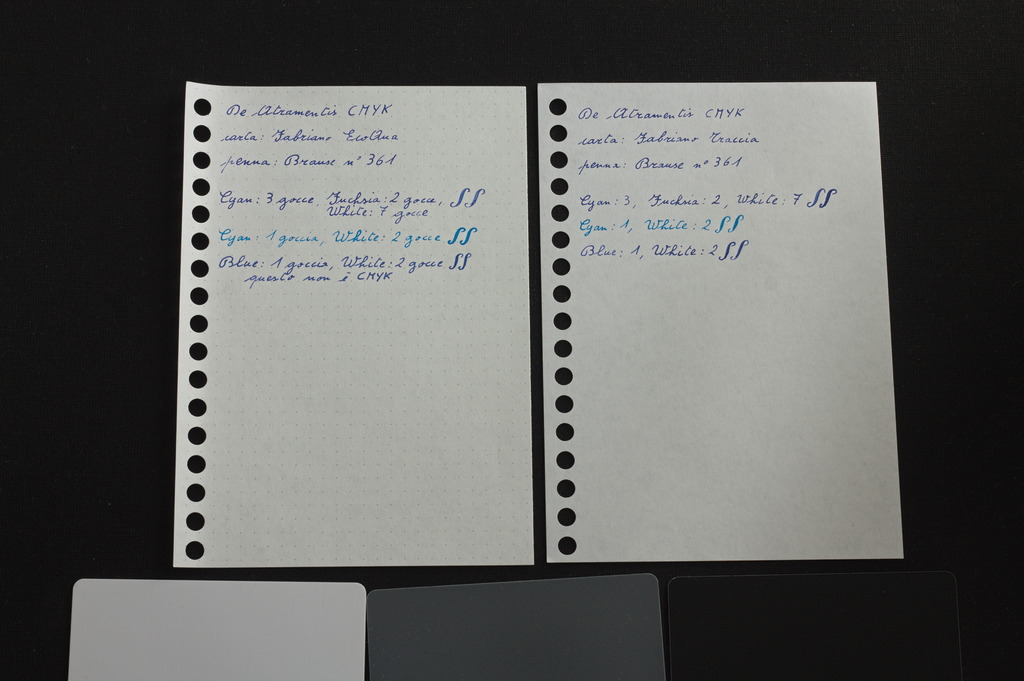 De Atramentis CMYK
carta: Fabriano EcoQua
penna: Brause n° 361
Cyan: 3 gocce, Fuchsia: 2 gocce,
White: 7 gocce
Cyan: 1 goccia, White: 2 gocce
Blue: 1 goccia, White: 2 gocce
questo non è CMYK
De Atramentis CMYK
carta: Fabriano Traccia
penna: Brause n° 361
Cyan: 3, Fuchsia: 2, White: 7
Cyan: 1, White: 2
Blue: 1, White: 2